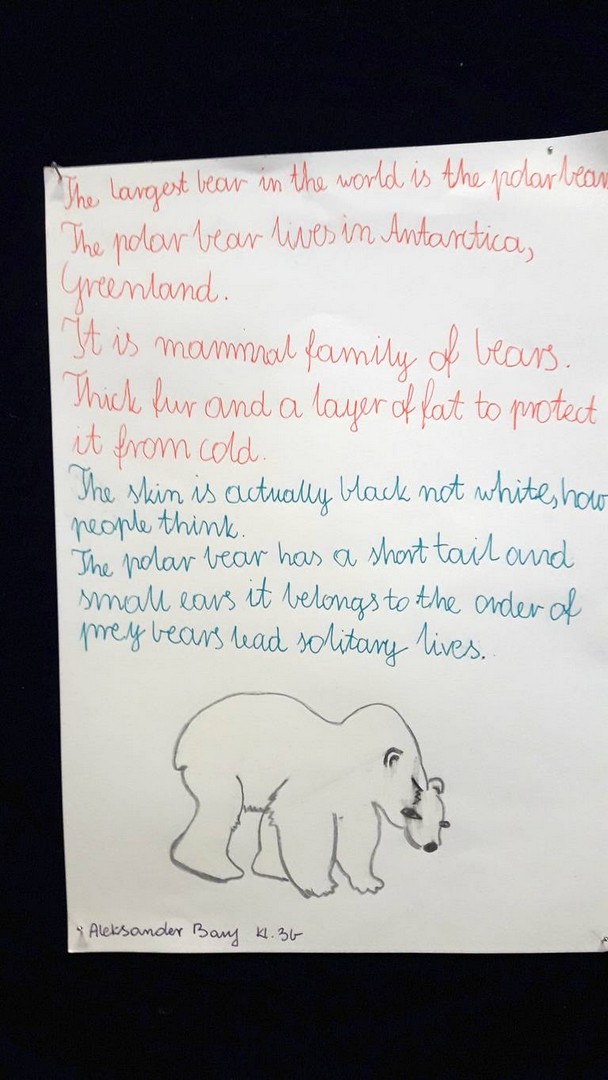 The largest bear in the world is the polar bear
The polar bear lives in Antarctica,
Greenland.
It is mammal family of bears.
Thick fur and a layer of fat to protect
it from cold.
The skin is actually black not white, how
people think.
The polar bear has a short tail and
small ears it belongs to the order of
prey bears lead solitary lives.
Aleksander Bary kl. 3b